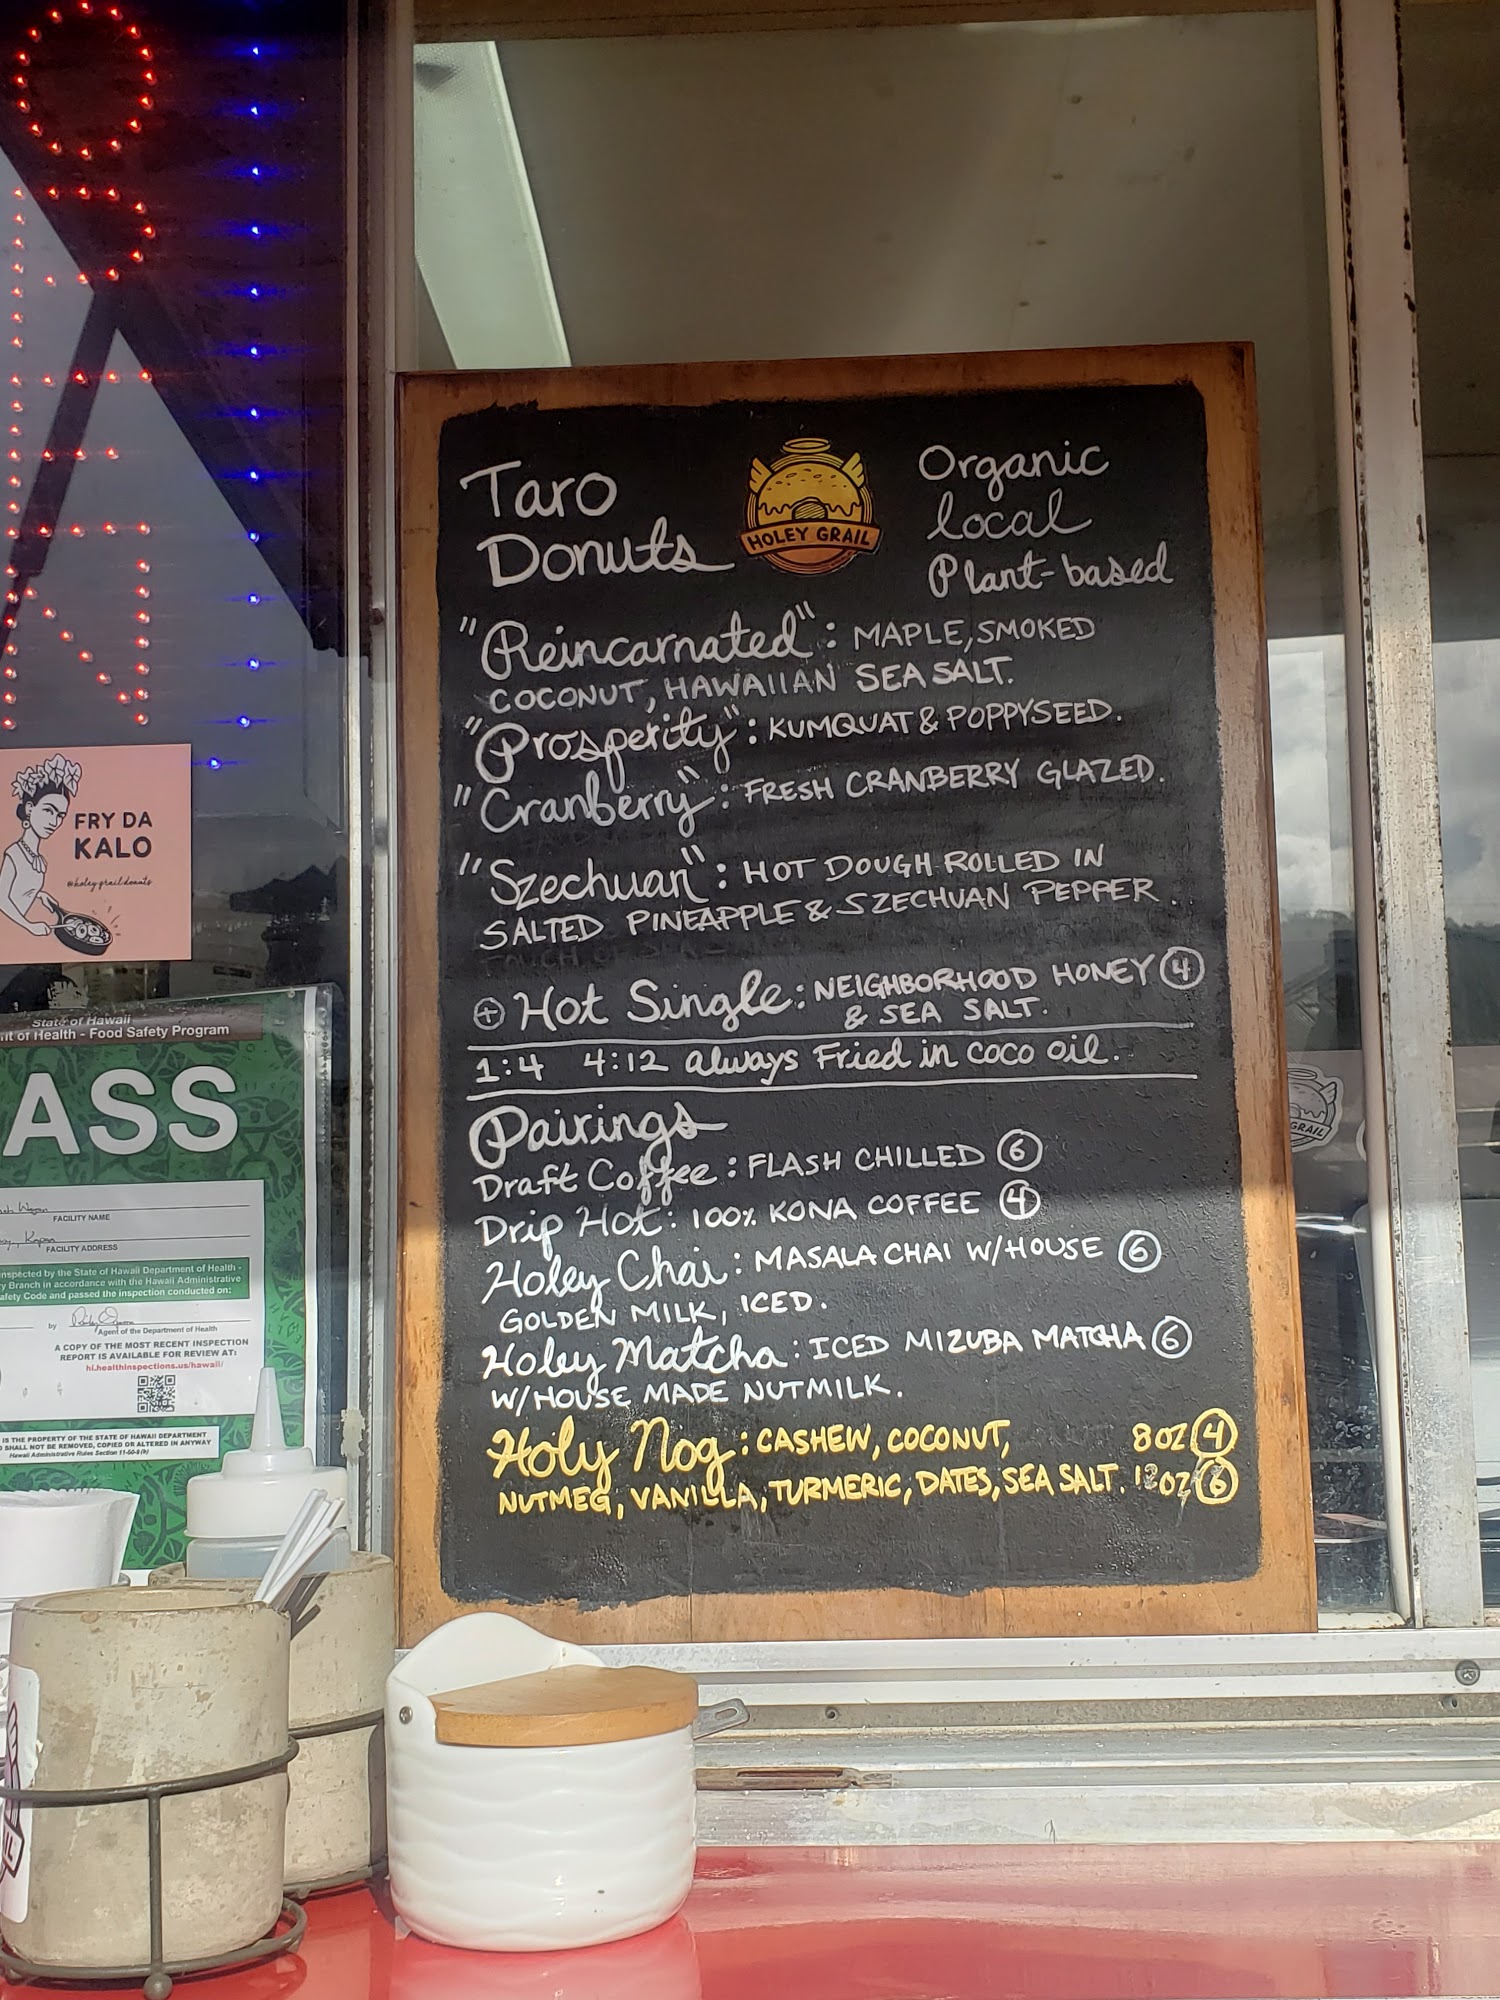 OPEN
Taro
Donuts
HOLEY GRAIL
Organic
local
Plant-based
"Reincarnated": MAPLE, SMOKED
COCONUT, HAWAIIAN SEA SALT.
"Prosperity": KUMQUAT & POPPYSEED.
"Cranberry": FRESH CRANBERRY GLAZED.
"Szechuan": HOT DOUGH ROLLED IN
SALTED PINEAPPLE & SZECHUAN PEPPER.
+ Hot Single: NEIGHBORHOOD HONEY 4
& SEA SALT.
1:4 4:12 always Fried in coco oil.
Pairings
Draft Coffee: FLASH CHILLED 6
Drip Hot: 100% KONA COFFEE 4
Holey Chai: MASALA CHAI W/HOUSE 6
GOLDEN MILK, ICED.
Holey Matcha: ICED MIZUBA MATCHA 6
W/HOUSE MADE NUTMILK.
Holy Nog: CASHEW, COCONUT, 8OZ 4
NUTMEG, VANILLA, TURMERIC, DATES, SEA SALT. 12OZ 6
FRY DA
KALO
@holeygraildonuts
State of Hawaii
nt of Health - Food Safety Program
ASS
FACILITY NAME
FACILITY ADDRESS
inspected by the State of Hawaii Department of Health -
y Branch in accordance with the Hawaii Administrative
afety Code and passed the inspection conducted on:
by
Agent of the Department of Health
A COPY OF THE MOST RECENT INSPECTION
REPORT IS AVAILABLE FOR REVIEW AT:
hi.healthinspections.us/hawaii/
IS THE PROPERTY OF THE STATE OF HAWAII DEPARTMENT
SHALL NOT BE REMOVED, COPIED OR ALTERED IN ANYWAY
Hawaii Administrative Rules Section 11-50-8(h)
GRAIL